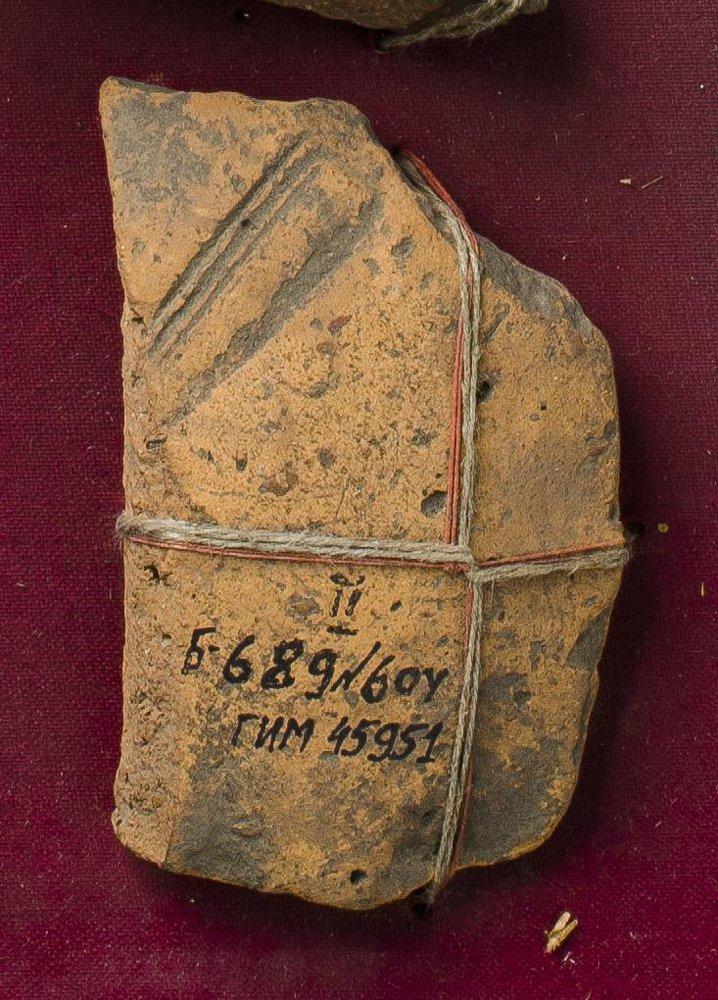 II
Б-689/60У
ГИМ 45951